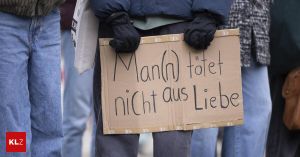 Man(n) tötet
nicht aus Liebe
KLZ